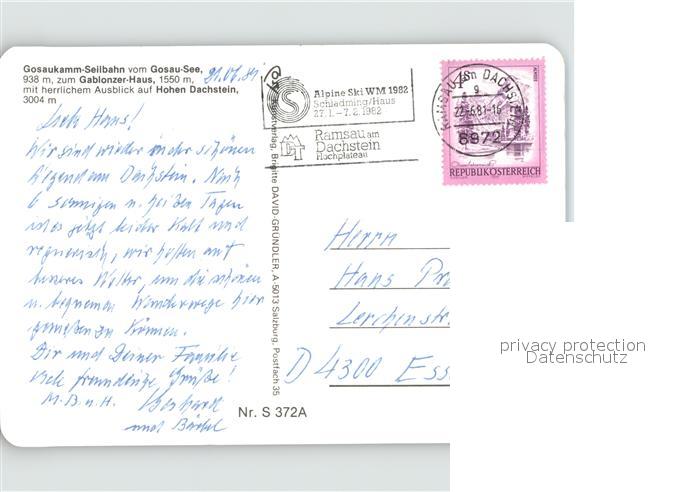 Gosaukamm-Seilbahn vom Gosau-See,
938 m, zum Gablonzer-Haus, 1550 m,
mit herrlichem Ausblick auf Hohen Dachstein,
3004 m
21.06.81
Lieber Hans!
Wir sind wieder in der schönen
Gegend am Dachstein. Nach
6 sonnigen u. heißen Tagen
ist es jetzt leider kalt und
regnerisch, wir hoffen auf
besseres Wetter, um die schönen
u. bequemen Wanderwege hier
genießen zu können.
Dir und Deiner Familie
viele freundliche Grüße!
M.B.u.H. Gerhard
und Bärbel
Nr. S 372A
Kunstverlag, Brigitte DAVID-GRÜNDLER, A-5013 Salzburg, Postfach 35
Alpine Ski WM 1982
Schladming/Haus
27.1.-7.2.1982
Ramsau am
Dachstein
Hochplateau
RAMSAU am DACHSTEIN
22.-6.81-16
8972
REPUBLIK ÖSTERREICH
Herrn
Hans Pr
Lerchenstr.
D 4300 Ess
privacy protection
Datenschutz